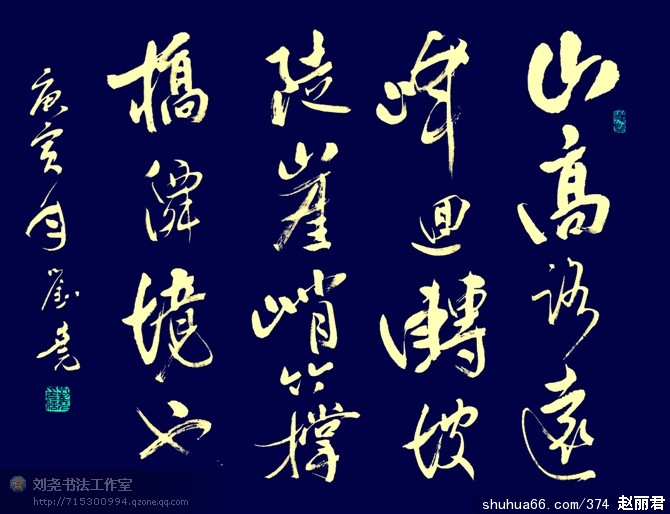 山高路遠
峰迴轉坡
陡崖峭撑
橋境也
庚寅年劉堯
刘尧书法工作室
http://715300994.qzone.qq.com
shuhua66.com/374 赵丽君